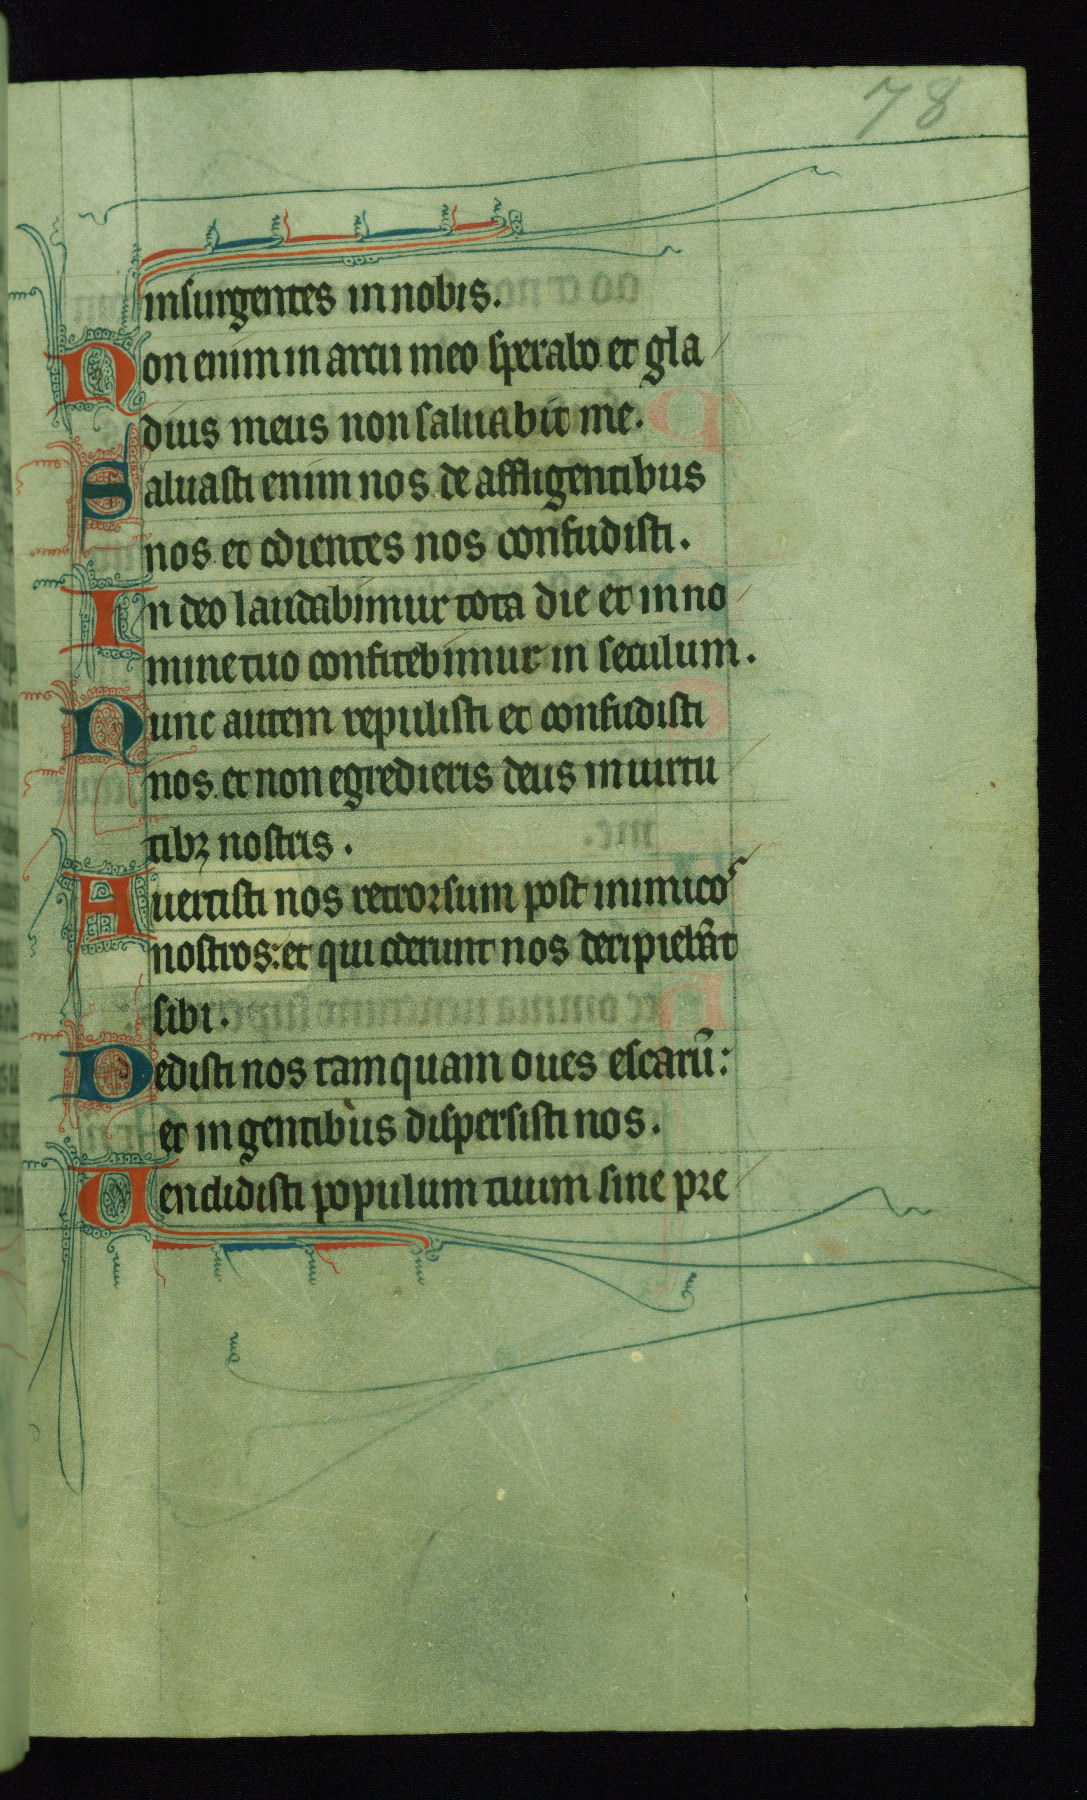 78
insurgentes in nobis.
Non enim in arcu meo sperabo et gla
dius meus non saluabit me.
Saluasti enim nos de affligentibus
nos. et odientes nos confudisti.
In deo laudabimur tota die et in no
mine tuo confitebimur in seculum.
Nunc autem repulisti et confudisti
nos. et non egredieris deus in uirtu
tibꝫ nostris.
Auertisti nos retrorsum post inimicos
nostros: et qui oderunt nos deripiebāt
sibi.
Dedisti nos tamquam oues escarū:
et in gentibus dispersisti nos.
Uendidisti populum tuum sine pre